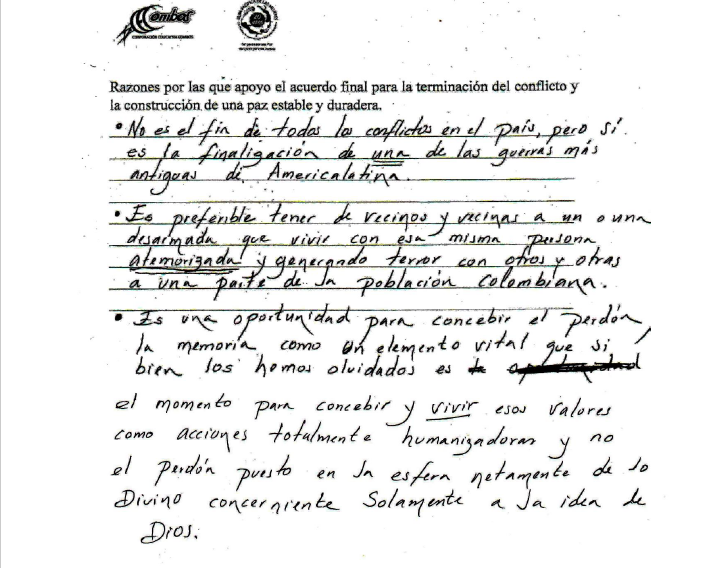 Combos
CORPORACIÓN EDUCATIVA COMBOS
Razones por las que apoyo el acuerdo final para la terminación del conflicto y
la construcción de una paz estable y duradera.
• No es el fin de todos los conflictos en el país, pero sí
es la finaligación de una de las guerras más
antiguas de Americalatina.
• Es preferible tener de vecinos y vecinas a un o una
desarmada que vivir con esa misma persona
atemorizada y generando terror con otros y otras
a una parte de la población Colombiana.
• Es una oportunidad para concebir el perdón,
la memoria como un elemento vital que si
bien los hemos olvidados es
el momento para concebir y vivir esos valores
como acciones totalmente humanizadoras y no
el perdón puesto en la esfera netamente de lo
Divino concerniente Solamente a la idea de
Dios.